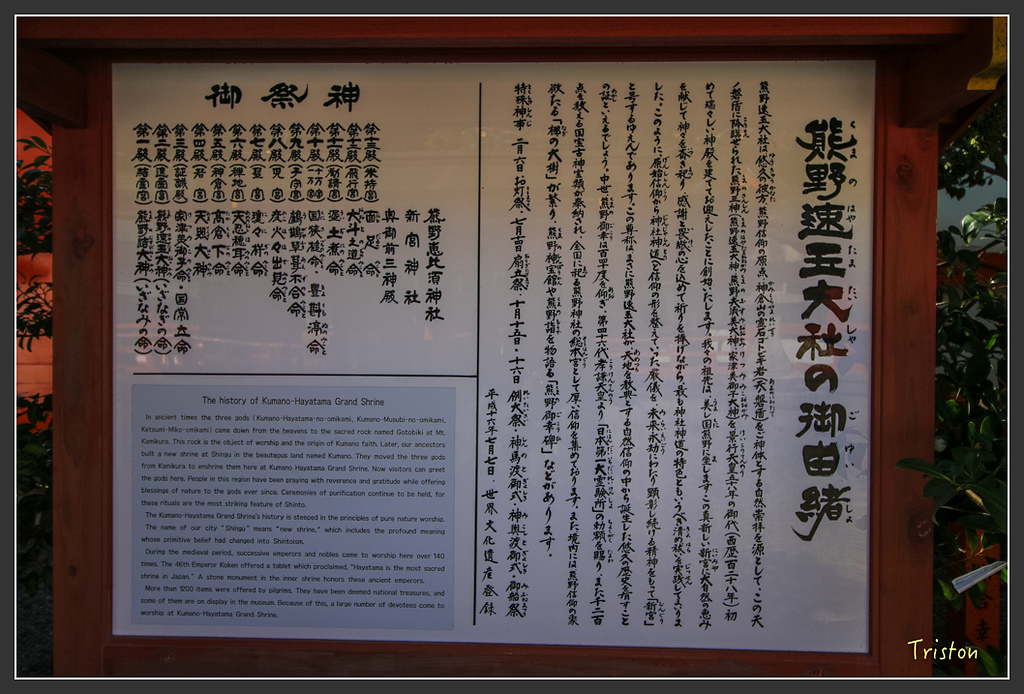 熊野速玉大社の御由緒
熊野速玉大社は悠久の彼方、熊野信仰の原点、神倉山の霊石ゴトビキ岩（天ノ磐盾）をご神体とする自然崇拝を源として、この天
ノ磐盾に降臨せられた熊野三神（熊野速玉大神・熊野夫須美大神・家津美御子大神）を景行天皇五十八年の御代（西暦百二十八年）初
めて瑞々しい神殿を建ててお迎えしたことに創始いたします。我々の祖先は、美し国熊野に座しますこの真新しい新宮に大自然の恵み
を献じて神々を斎き祀り、感謝と畏敬の心を込めて祈りを捧げながら、最も神社神道の特色ともいうべき清めの祓を実践してまいりま
した。このように、原始信仰から神社神道へと信仰の形を整えていった厳儀を、未来永劫にわたり顕彰し続ける精神をもって「新宮」
と号するゆえんであります。この尊称はまさに熊野速玉大社が、天地を教典とする自然信仰の中から誕生した悠久の歴史を有すこと
の証といえるでしょう。中世、熊野御幸は百四十度を仰ぎ、第四十六代孝謙天皇より「日本第一大霊験所」の勅額を賜り、また千二百
点を数える国宝古神宝類が奉納され、全国に祀る熊野神社の総本宮として厚い信仰を集めております。また境内には熊野信仰の象
徴たる「梛の大樹」が繁り、熊野神宝館や熊野詣を物語る「熊野御幸碑」などがあります。
特殊神事 二月六日お灯祭、七月 扇立祭、十月十五日・十六日 例大祭（神馬渡御式・神輿渡御式・御船祭
平成十六年七月七日、世界文化遺産登録
御祭神
第一殿（結宮） 熊野結大神（いざなみの命）
第二殿（速玉宮） 熊野速玉大神（いざなぎの命）
第三殿（証誠殿） 家津美御子命・国常立命
第四殿（若宮） 天照大神
第五殿（神倉宮） 高倉下命
第六殿（禅地宮） 天忍穂耳命
第七殿（聖宮） 瓊々杵命
第八殿（児宮） 彦火々出見命
第九殿（子守宮） 鸕鶿草葺不合命
第十殿（一万宮・十万宮） 国狭槌命・豊斟渟命
第十一殿（勧請宮） 泥土煮命
第十二殿（飛行宮） 大斗之道命
第十三殿（米持宮） 面足命
奥御前三神殿
新宮神社
熊野恵比須神社
The history of Kumano-Hayatama Grand Shrine
In ancient times the three gods (Kumano-Hayatama-no-omikami, Kumano-Musubi-no-omikami,
Ketsumi-Miko-omikami) came down from the heavens to the sacred rock named Gotobiki at Mt.
Kamikura. This rock is the object of worship and the origin of Kumano faith. Later, our ancestors
built a new shrine at Shingu in the beauteous land named Kumano. They moved the three gods
from Kamikura to enshrine them here at Kumano Hayatama Grand Shrine. Now visitors can greet
the gods here. People in this region have been praying with reverence and gratitude while offering
blessings of nature to the gods ever since. Ceremonies of purification continue to be held, for
these rituals are the most striking feature of Shinto.
The Kumano-Hayatama Grand Shrine's history is steeped in the principles of pure nature worship.
The name of our city "Shingu" means "new shrine," which includes the profound meaning
whose primitive belief had changed into Shintoism.
During the medieval period, successive emperors and nobles came to worship here over 140
times. The 46th Emperor Koken offered a tablet which proclaimed, "Hayatama is the most sacred
shrine in Japan." A stone monument in the inner shrine honors these ancient emperors.
More than 1200 items were offered by pilgrims. They have been deemed national treasures, and
some of them are on display in the museum. Because of this, a large number of devotees come to
worship at Kumano-Hayatama Grand Shrine.
Triston